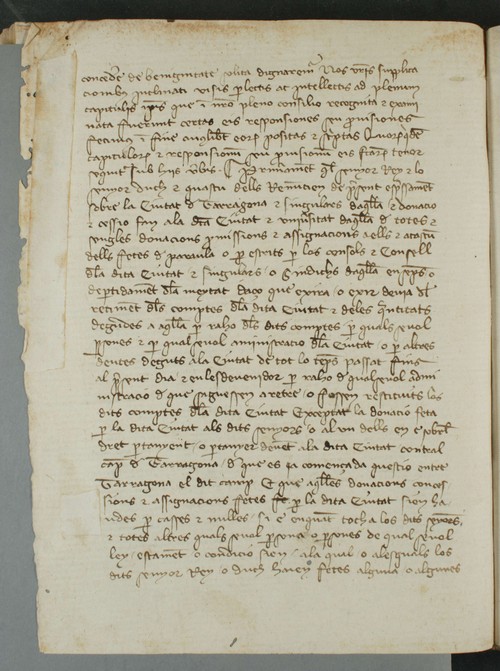 concedere de benignitate solita dignaremur Nos vestris supplica
cionibus inclinati visis perlectis ac intellectis ad plenum
capitulis ipsis que in nostro pleno consilio recognita et exami
nata fuerunt certas eis responsiones seu provisiones
fecimus in fine cuiuslibet eorum positas et scriptas Quorumquidem
capitulorum et responsionum seu provisionum eis factarum tenor
sequitur sub hiis verbis Primerament quel senyor Rey e lo
senyor duch e quascu dells Renuncien de present expressament
sobre la Ciutat de Tarragona e singulars daquella e donacio
e cessio fan ala dita Ciutat e universitat daquella de totes e
sengles donacions promissions e assignacions a ells e a cascun
dells fetes de paraula o per escrits per los consols e Consell
dela dita Ciutat e singulars o Sindichs daquella ensemps o
departidament dela meytat daço que exira o exir deuia del
retiment dels comptes dela dita Ciutat e deles quantitats
degudes a aquella per raho dels dits comptes per quals sevol
persones e per qual sevol aministracio dela Ciutat o per altres
deutes deguts ala Ciutat de tot lo temps passat fins
al present dia e en lesdevenidor per raho de qualsevol admi
nistracio de que saguessen a retre o fossen restituits los
dits comptes dela dita Ciutat Exceptat la donacio feta
per la dita Ciutat als dits senyors o al un dells en e sobrel
dret pertanyent o pertanyer devent ala dita Ciutat contral
camp de Tarragona de que es ja començada questio entre
Tarragona el dit camp E que aquelles donacions conces
sions e assignacions fetes per la dita Ciutat sien ha
udes per casses e nulles si e en quant tocha los dits senyors
e totes altres quals sevol persona o persones de qual sevol
ley estament o condicio sien ala qual o alesquals los
dits senyor Rey o duch haien fetes alguna o algunes